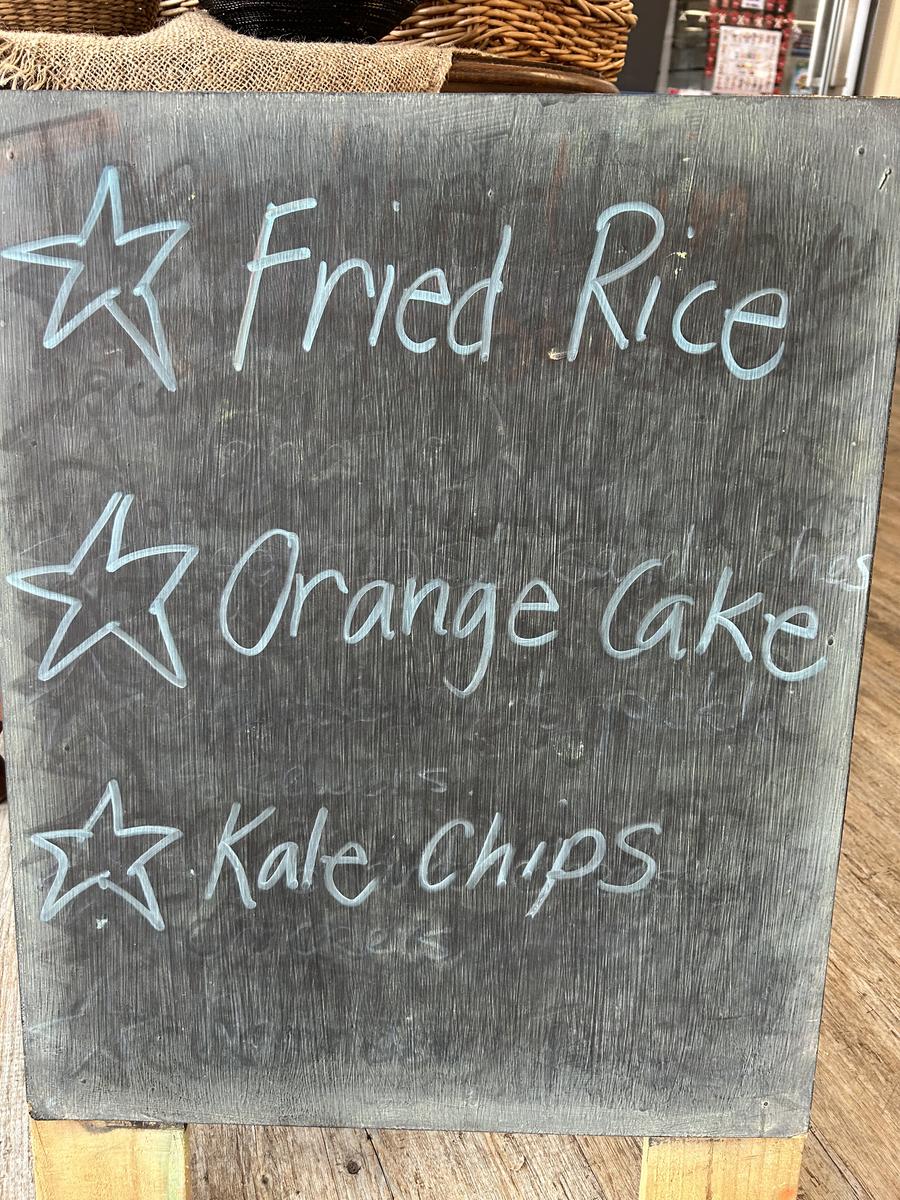 Fried Rice
Orange Cake
Kale Chips